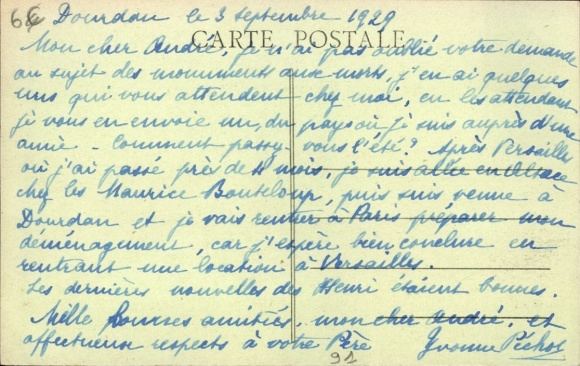 Dourdan le 3 septembre 1929
CARTE POSTALE
Mon cher André, je n'ai pas oublié votre demande
au sujet des monuments aux morts, j'en ai quelques
uns qui vous attendent chez moi, en les attendant
je vous en envoie un, du pays où je suis auprès d'une
amie - Comment passez-vous l'été? Après Versailles
où j'ai passé près de 4 mois, je suis allée en Alsace
chez les Maurice Bouteloup, puis suis venue à
Dourdan et je vais rentrer à Paris préparer mon
déménagement, car j'espère bien conclure en
rentrant une location à Versailles.
Les dernières nouvelles des Henri étaient bonnes.
Mille bonnes amitiés, mon cher André, et
affectueux respects à votre Père Yvonne
91